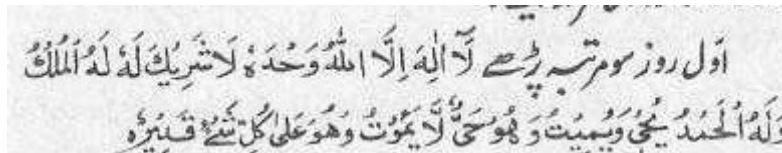 اول روز سو مرتبہ پڑھے لَآ اِلٰهَ اِلَّا اللهُ وَحْدَهٗ لَا شَرِيْكَ لَهٗ لَهُ الْمُلْكُ
وَلَهُ الْحَمْدُ يُحْيٖ وَيُمِيْتُ وَهُوَ حَىٌّ لَّا يَمُوْتُ وَهُوَ عَلٰى كُلِّ شَىْءٍ قَدِيْرٌ ه